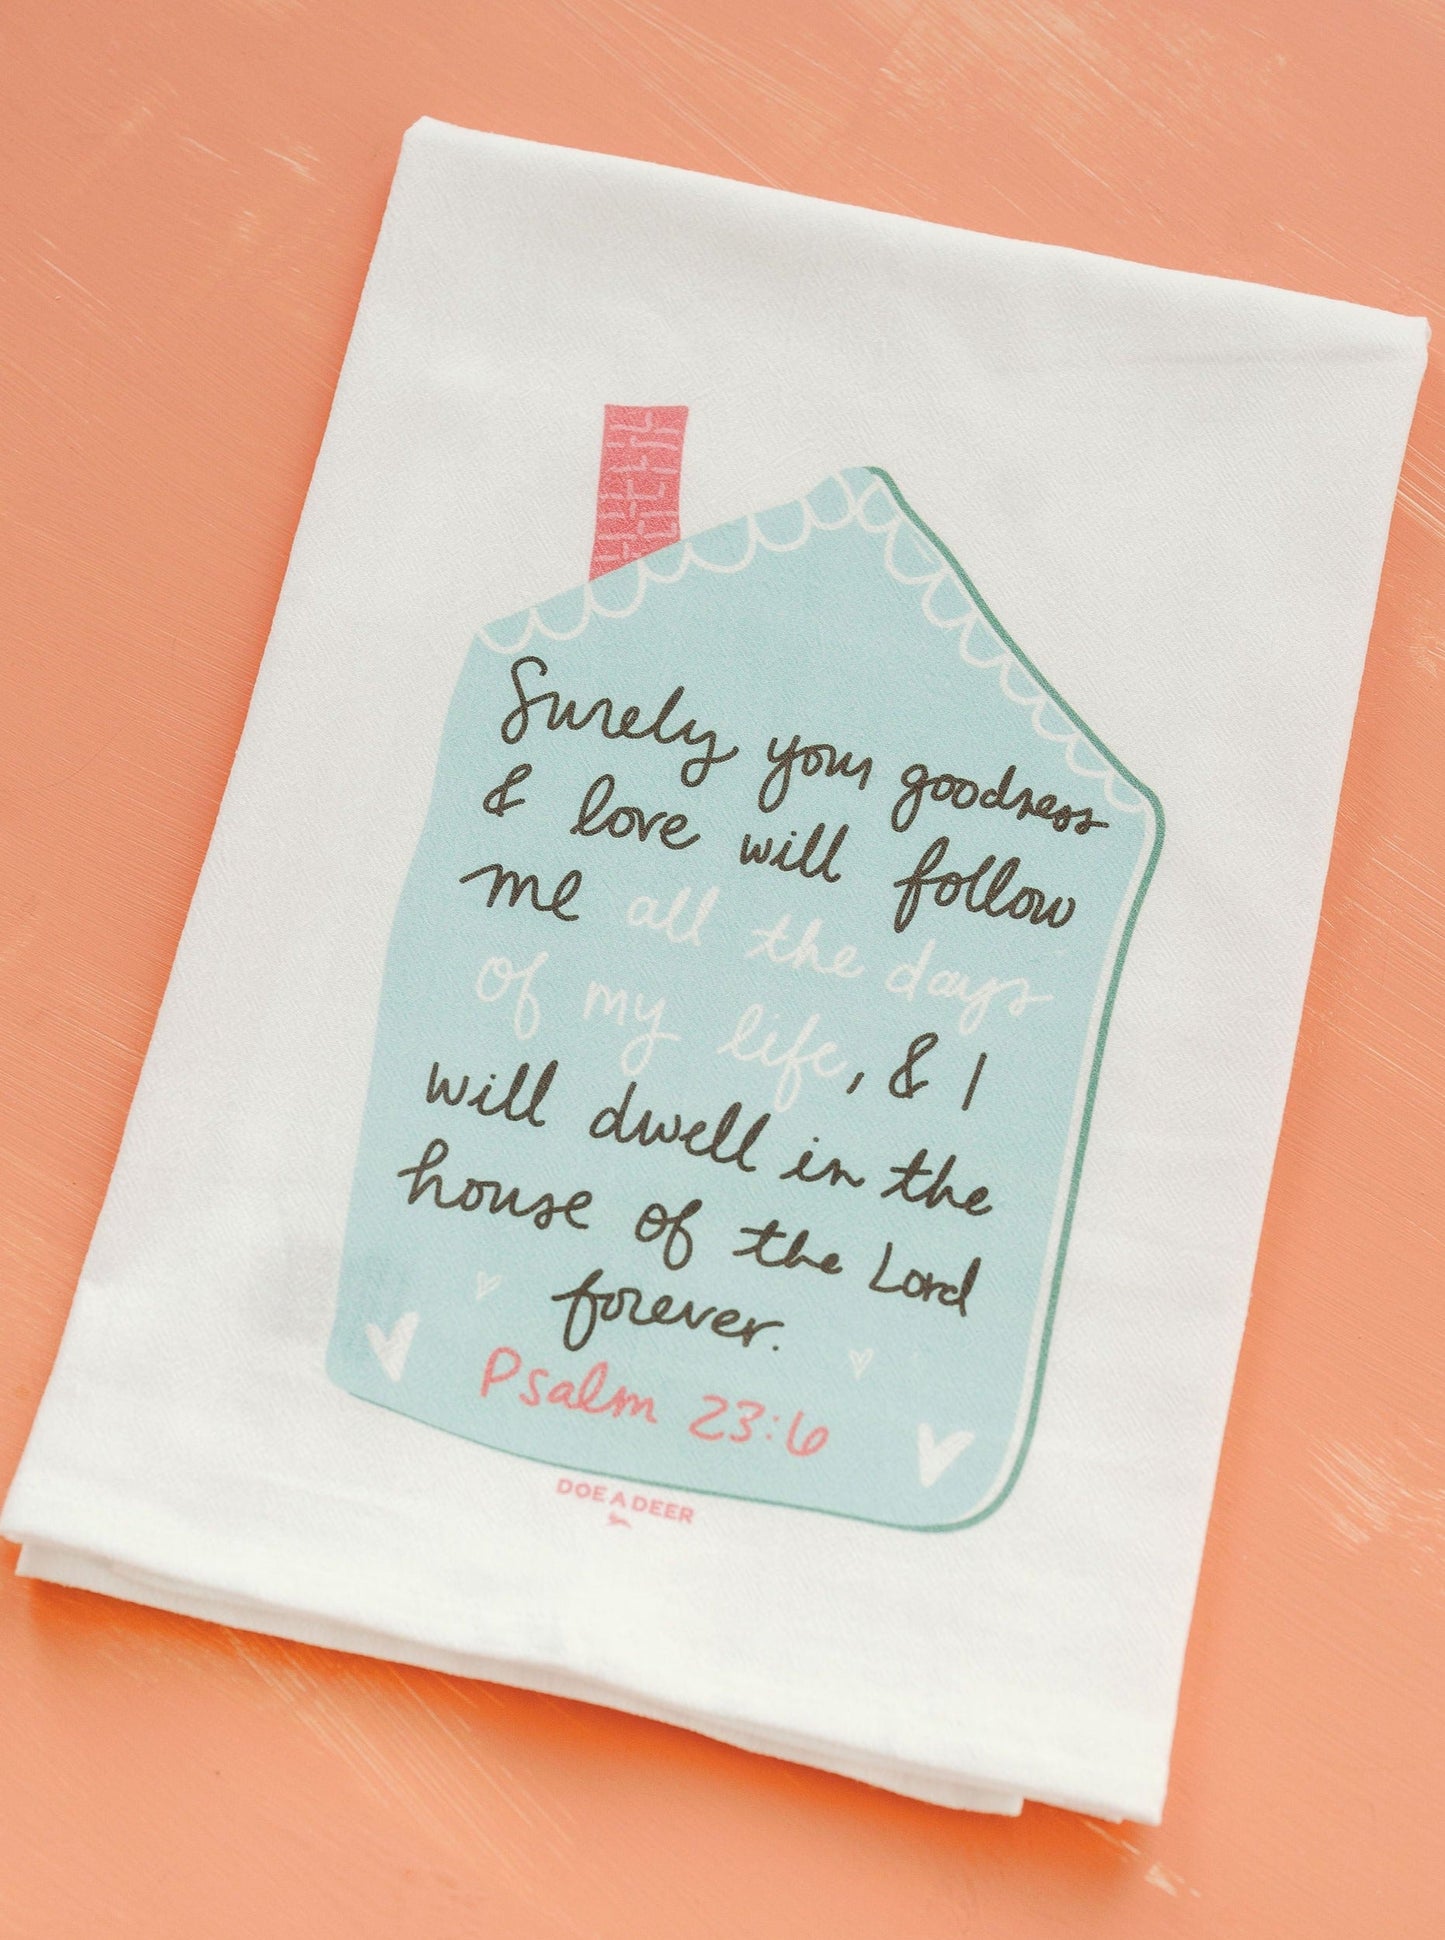 Surely your goodness
& love will follow
me all the days
of my life, & I
will dwell in the
house of the Lord
forever.
Psalm 23:6
DOE A DEER